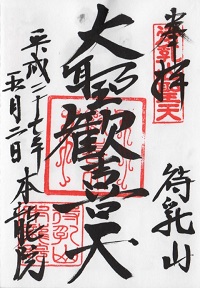 奉拝
待乳山
大聖歓喜天
平成二十七年
五月二日 本龍院